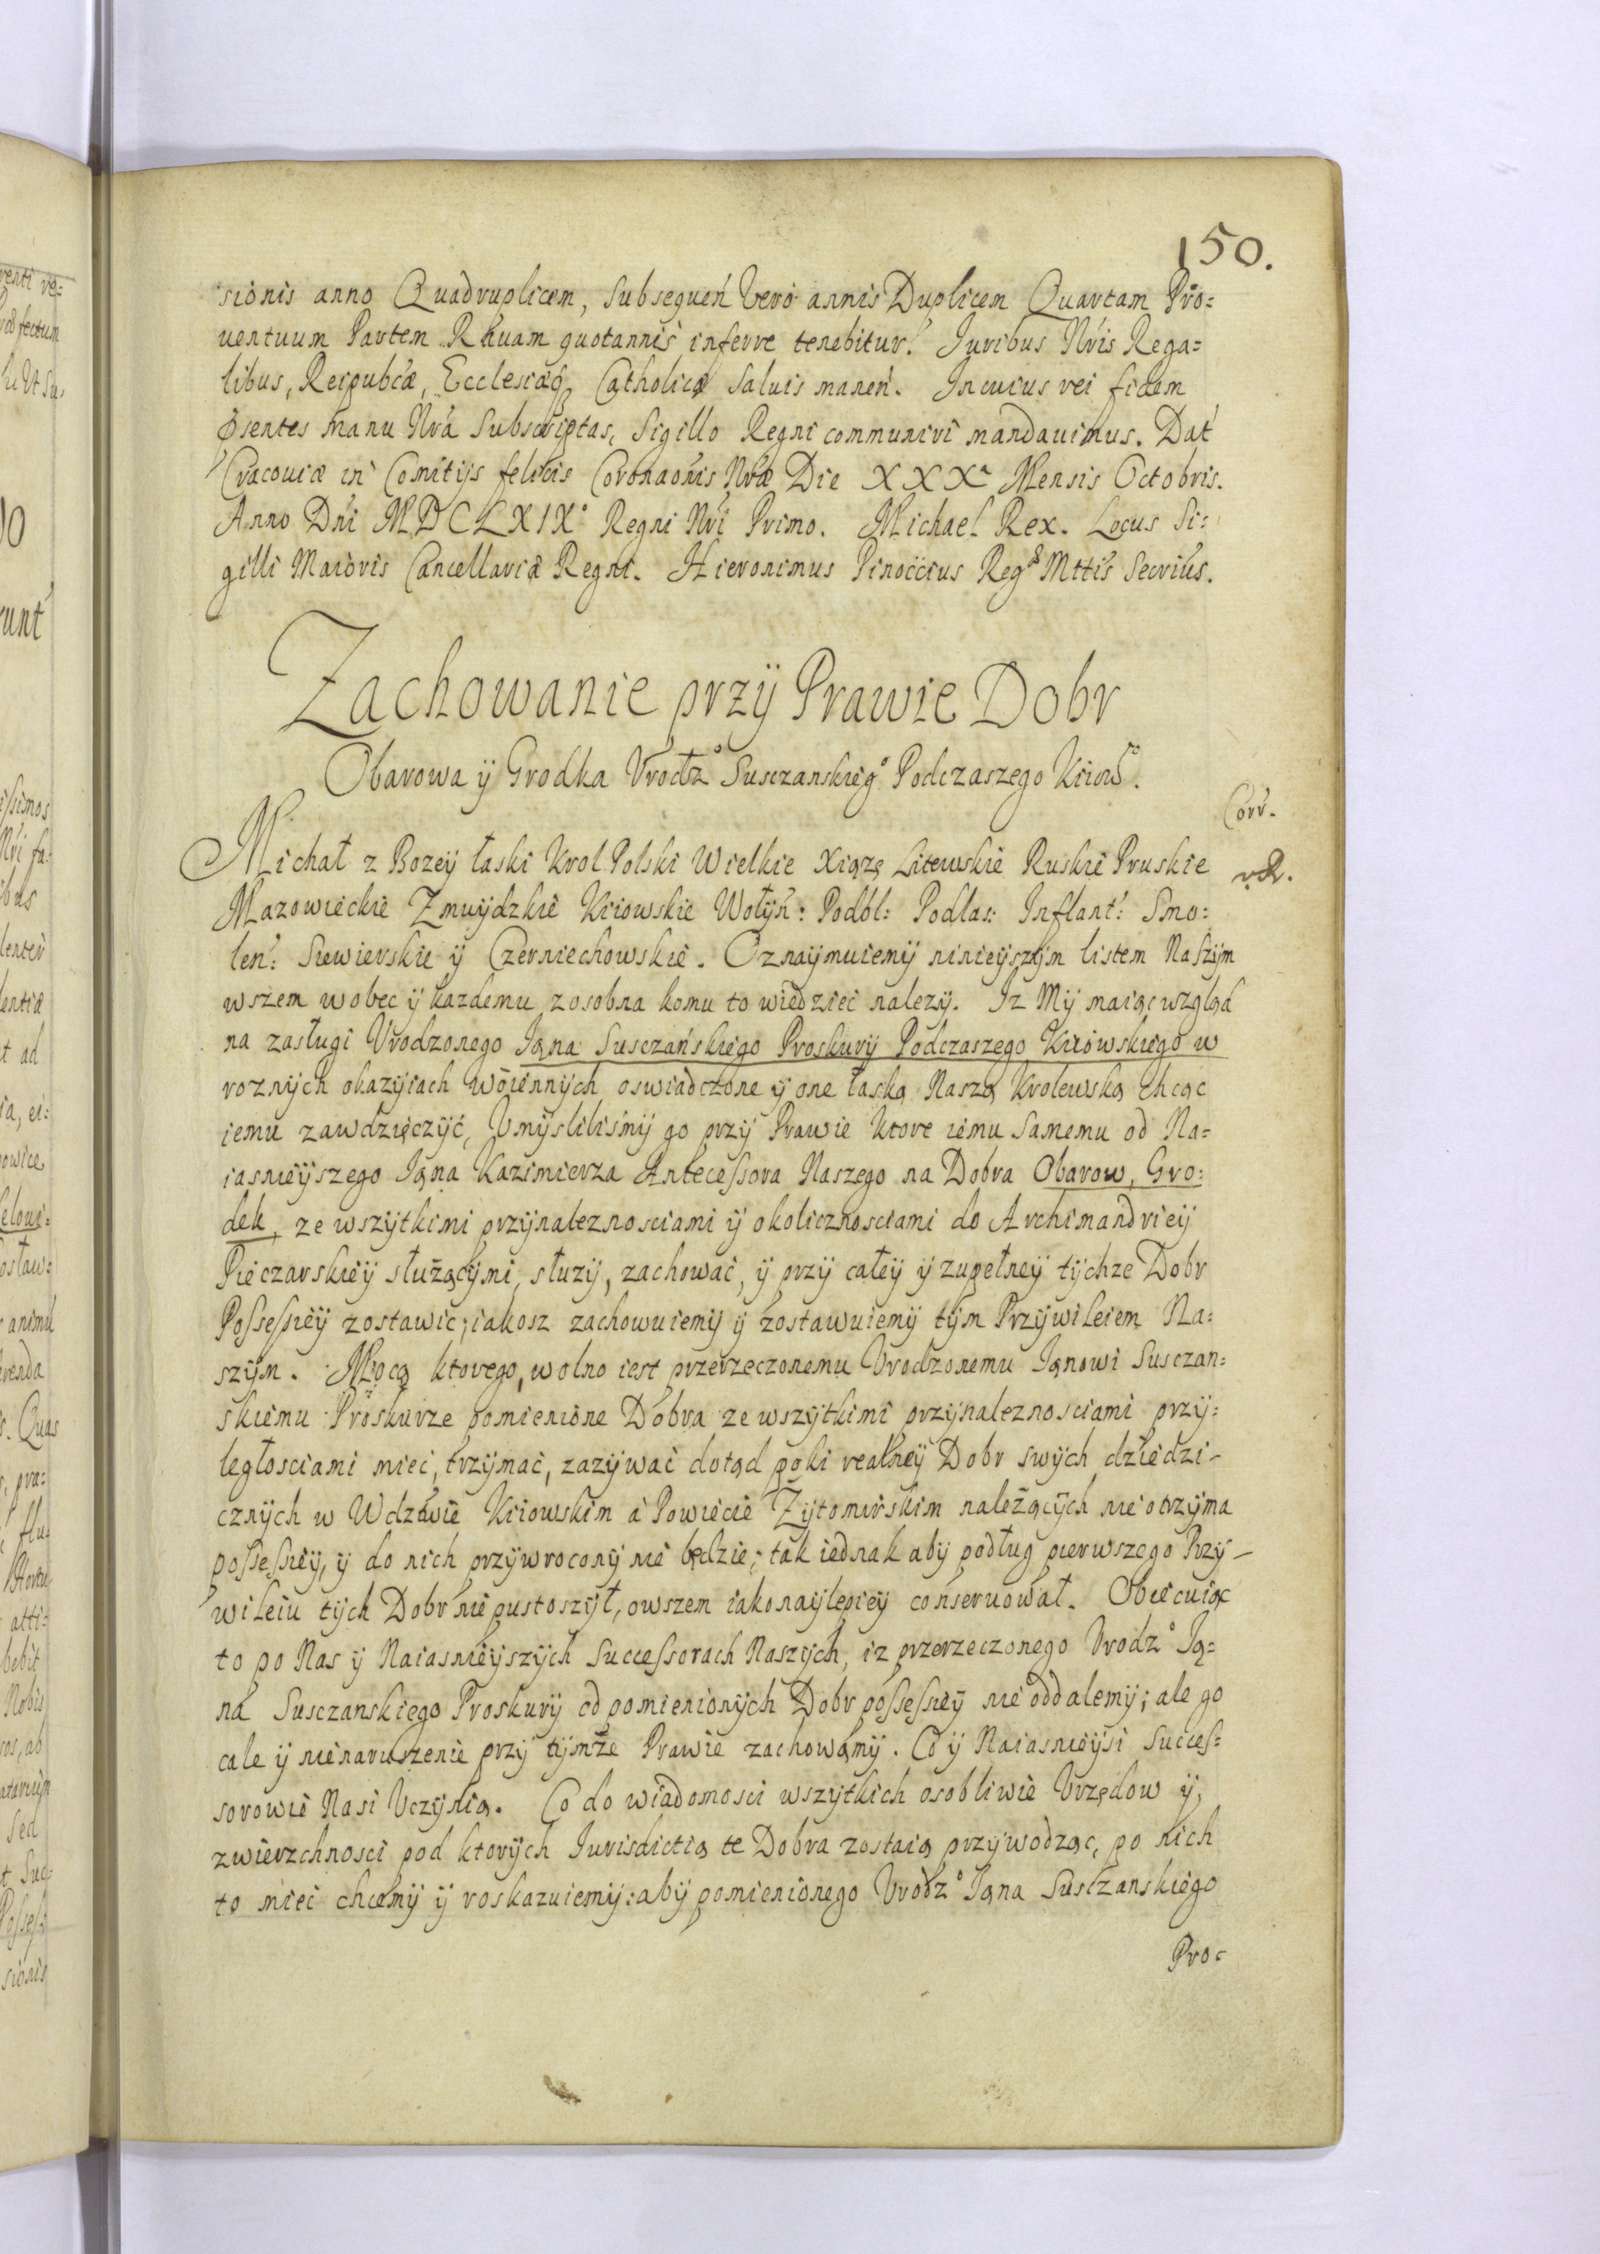 150.
sionis anno Quadruplicem, Subsequeń Vero annis Duplicem Quartam Pro=
uentuum Partem Rhuam quotannis inferre tenebitur. Iuribus Nris Rega=
libus, Reipubcæ, Ecclesiæq Catholicæ Saluis maneń. In cuius rei fidem
pñsentes manu Nrã Subscriptas, Sigillo Regni communiri mandauimus. Dat
Cracouiæ in Comitijs felicis Coronaõnis Nræ Die XXXª Mensis Octobris.
Anno Dñi MDCLXIXº Regni Nri Primo. Michael Rex. Locus Si=
gilli Maioris Cancellariæ Regni. Hieronimus Pinoccius Reg Mttis Secrius.
Zachowanie przÿ Prawie Dobr
Obarowa ÿ Grodka Vrodzº Susczanskiegº Podczaszego Kiiowº.
Corr.
Michał z Bozeÿ łaski Krol Polski Wielkie Xiązę Litewskie Ruskie Pruskie
Mazowieckie Zmuÿdzkie Kiiowskie Wołÿń: Podol: Podlas: Inflant: Smo=
leń: Siewierskie ÿ Czerniechowskie. Oznaÿmuiemÿ ninieÿszÿm listem Naszÿm
wszem wobec ÿ kazdemu zosobna komu to wiedzieć nalezÿ. Iz Mÿ maiąc wzgląd
na zasługi Vrodzonego Iana Susczańskiego Proskurÿ Podczaszego Kiiowskiego w
roznÿch okazÿiach woiennÿch oswiadczone ÿ one łaską Naszą Krolewską chcąc
iemu zawdzięczÿć, Vmÿsliliśmÿ go przÿ Prawie ktore iemu Samemu od Na=
iasnieÿszego Iana Kazimierza Antecessora Naszego na Dobra Obarow, Gro=
dek, ze wszÿtkimi przÿnaleznosciami ÿ okolicznosciami do Archimandrieÿ
Pieczarskieÿ służącÿmi, słuzÿ, zachować, ÿ przÿ całeÿ ÿ zupełneÿ tÿchze Dobr
Possessieÿ zostawić; iakosz zachowuiemÿ ÿ zostawuiemÿ tÿm Przÿwileiem Na=
szÿm. Mocą ktorego, wolno iest przerzeczonemu Vrodzonemu Ianowi Susczan=
skiemu Proskurze pomienione Dobra ze wszÿtkimi przÿnaleznosciami przÿ=
ległosciami mieć, trzÿmać, zazÿwać dotąd poki realneÿ Dobr swÿch dziedzi-
cznÿch w Wdztwie Kiiowskim a Powiecie Żÿtomirskim należącÿch nie otrzÿma
possessieÿ, ÿ do nich przÿwroconÿ nie będzie; tak iednak abÿ podług pierwszego Przÿ-
wileiu tÿch Dobr nie pustoszÿł, owszem iakonaÿlepieÿ conseruował. Obiecuiąc
to po Nas ÿ Naiasnieÿszÿch Successorach Naszÿch, iz przerzeczonego Vrodzº Ia=
na Susczanskiego Proskurÿ od pomienionÿch Dobr possessieÿ nie oddalemÿ; ale go
cale ÿ nienaruszenie przÿ tÿmże Prawie zachowamÿ. Co ÿ Naiasnieÿsi Succes=
sorowie Nasi Vczÿnią. Co do wiadomosci wszÿtkich osobliwie Vrzędow ÿ
zwierzchnosci pod ktorÿch Iurisdictią te Dobra zostaią przÿwodząc, po nich
to mieć chcemÿ ÿ roskazuiemÿ: abÿ pomienionego Vrodzº Iana Susczanskiego
Pro=